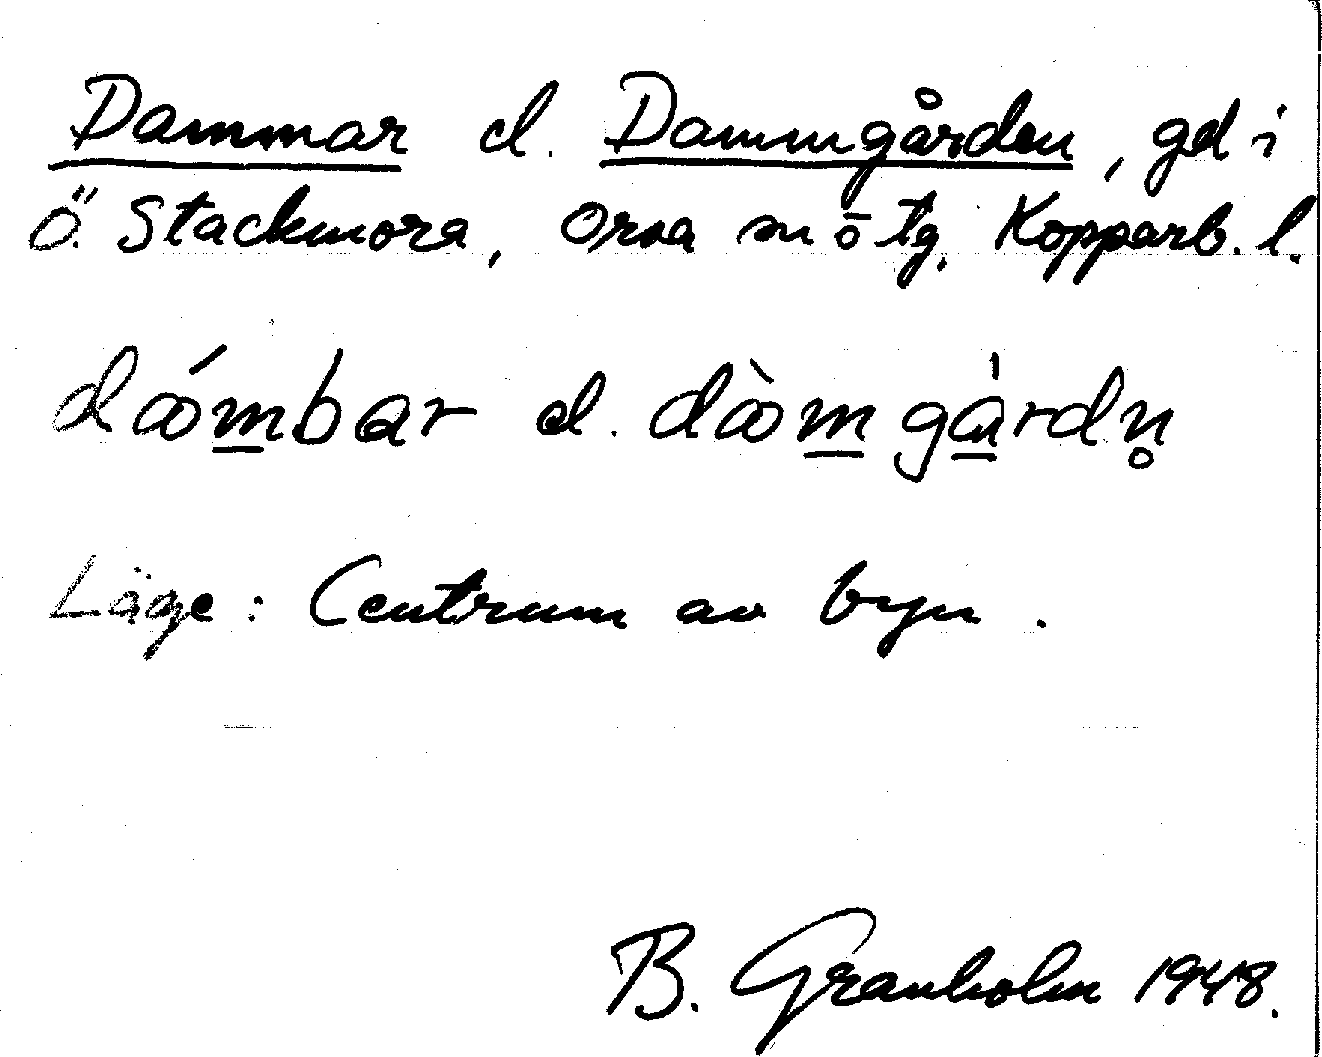 Dammar el. Dammgården, gd i
Ö. Stackmora, Orsa sn o tg. Kopparb. l.
dámbar el. dàmgárdn̥
Läge: Centrum av byn.
B. Granholm 1948.